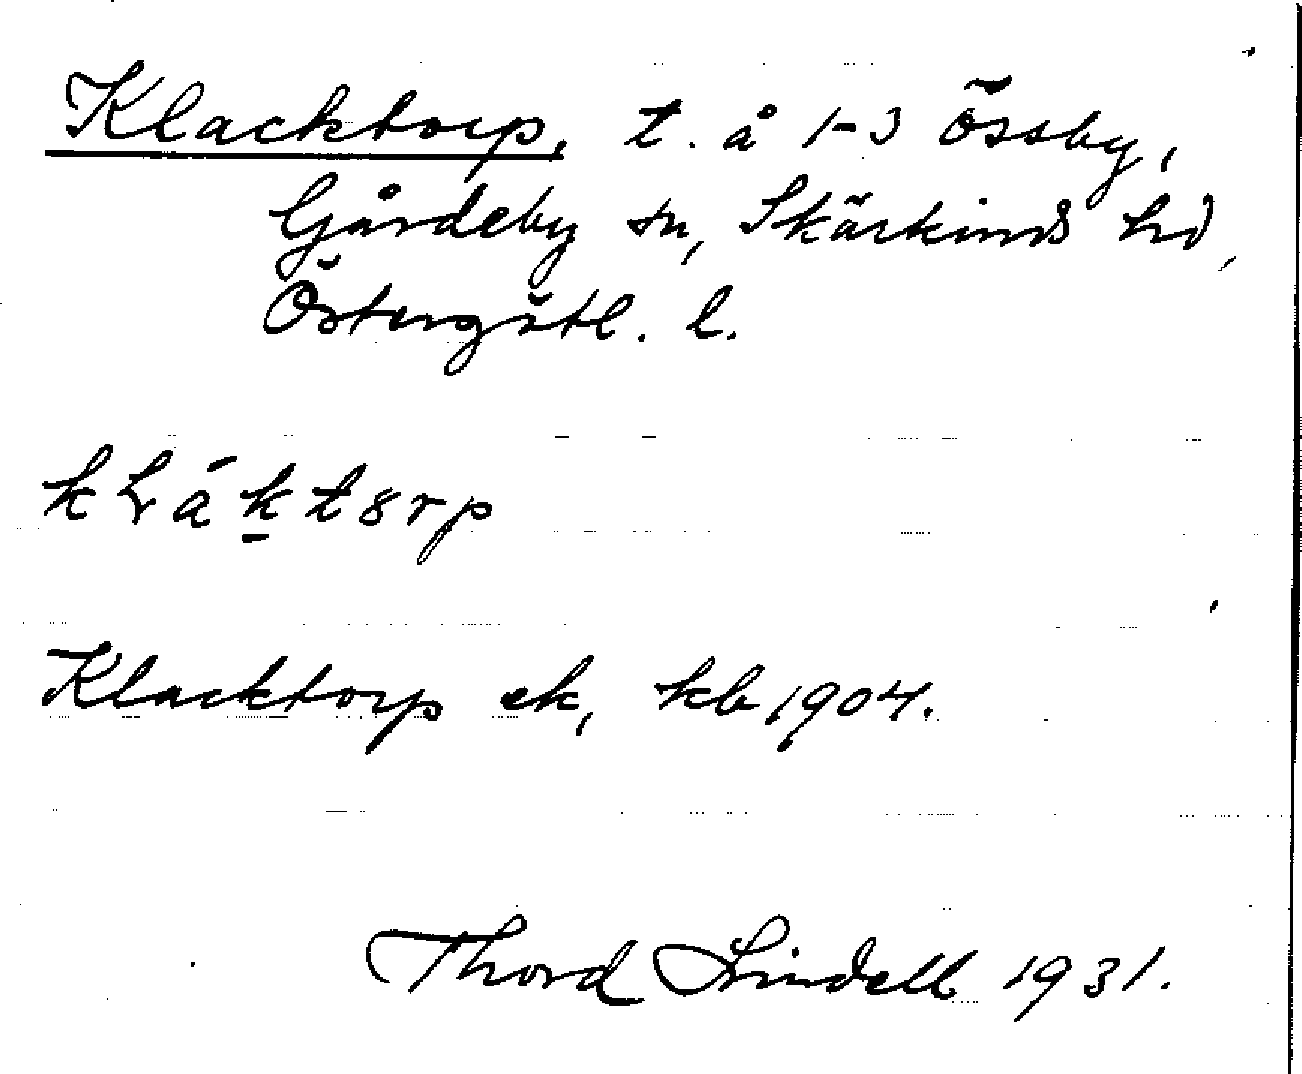 Klacktorp, t. å 1-3 Össby,
Gårdeby sn, Skärkinds hd,
Östergötl. l.
kLák̠t8rp
Klacktorp ek, kb 1904.
Thord Lindell 1931.